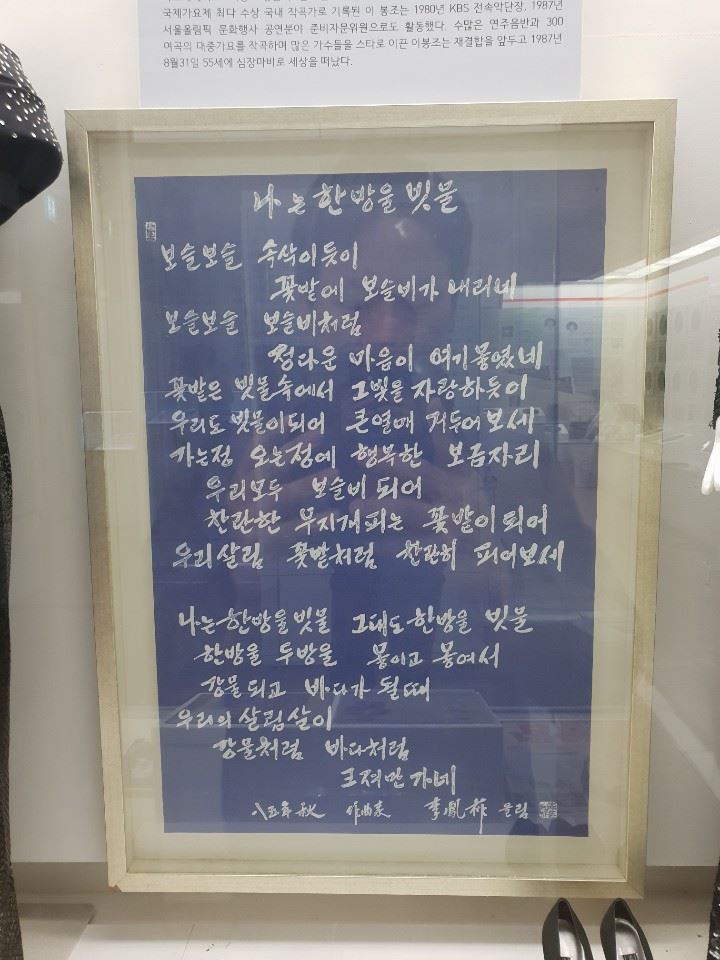 국제가요제 최다 수상 국내 작곡가로 기록된 이 봉조는 1980년 KBS 전속악단장, 1987년
서울올림픽 문화행사 공연분야 준비자문위원으로도 활동했다. 수많은 연주음반과 300
여곡의 대중가요를 작곡하며 많은 가수들을 스타로 이끈 이봉조는 재결합을 앞두고 1987년
8월31일 55세에 심장마비로 세상을 떠났다.
나는 한방울 빗물
보슬보슬 속삭이듯이
꽃밭에 보슬비가 내리네
보슬보슬 보슬비처럼
정다운 마음이 여기 뫃였네
꽃밭은 빗물속에서 그빛을 자랑하듯이
우리도 빗물이되어 큰열매 거두어보세
가는정 오는정에 행복한 보금자리
우리모두 보슬비 되어
찬란한 무지개피는 꽃밭이 되어
우리살림 꽃밭처럼 찬란히 피어보세
나는한방울빗물 그대도한방울 빗물
한방울 두방울 뫃이고 뫃여서
강물되고 바다가 될때
우리의 살림살이
강물처럼 바다처럼
크져만 가네
八五年 秋 作曲家 李鳳祚 올림